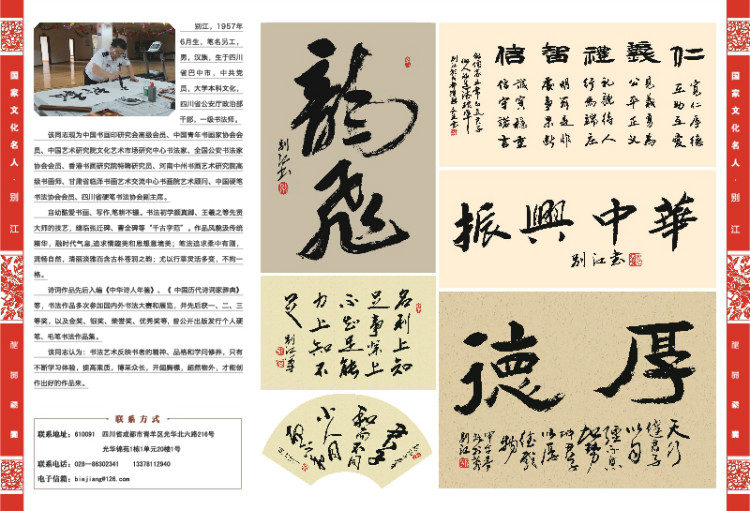 国家文化名人·别江
别江，1957年
6月生，笔名员工，
男，汉族，生于四川
省巴中市，中共党
员，大学本科文化，
四川省公安厅政治部
干部，一级书法师。
该同志现为中国书画印研究会高级会员、中国青年书画家协会会
员、中国艺术研究院文化艺术市场研究中心书法家、全国公安书法家
协会会员、香港书画研究院特聘研究员、河南中州书画艺术研究院高
级书画师、甘肃省临泽书画艺术交流中心书画院艺术顾问、中国硬笔
书法协会会员、四川省硬笔书法协会副主席。
自幼酷爱书画、写作，笔耕不辍。书法初学颜真卿、王羲之等先贤
大师的技艺，继临张迁碑、曹全碑等“千古字范”，作品风貌汲传统
精华，融时代气息，追求情趣美和思想意境美；笔法追求柔中有刚，
流畅自然，清丽淡雅而含古朴苍润之韵；尤以行草灵活多变，不拘一
格。
诗词作品先后入编《中华诗人年鉴》、《中国历代诗词家辞典》
等，书法作品多次参加国内外书法大赛和展览，并先后获一、二、三
等奖，以及金奖、银奖、荣誉奖、优秀奖等，曾公开出版发行个人硬
笔、毛笔书法作品集。
该同志认为：书法艺术反映书者的精神、品格和学问修养，只有
不断学习体验，提高素质，博采众长，开阔胸襟，超然物外，才能创
作出好的作品来。
联系方式
联系地址：610091 四川省成都市青羊区光华北六路216号
光华锦苑1栋1单元20楼1号
联系电话：028—86302341 13378112940
电子信箱：biejiang@126.com
龍飛
别江书
仁義禮智信
寬仁厚德
互助互愛
見義勇為
公平正义
礼貌待人
行為端庄
明辨是非
處事果斷
誠實稳重
信守諾言
振興中華
别江書
名利上知
足事業上
不知足能
力上知不
足
别江書
君子
和而不同
小人同
而不和
厚德
天行
健君子
以自
强不息
地勢
坤君子
以厚
德載
物
别江
国家文化名人·别江